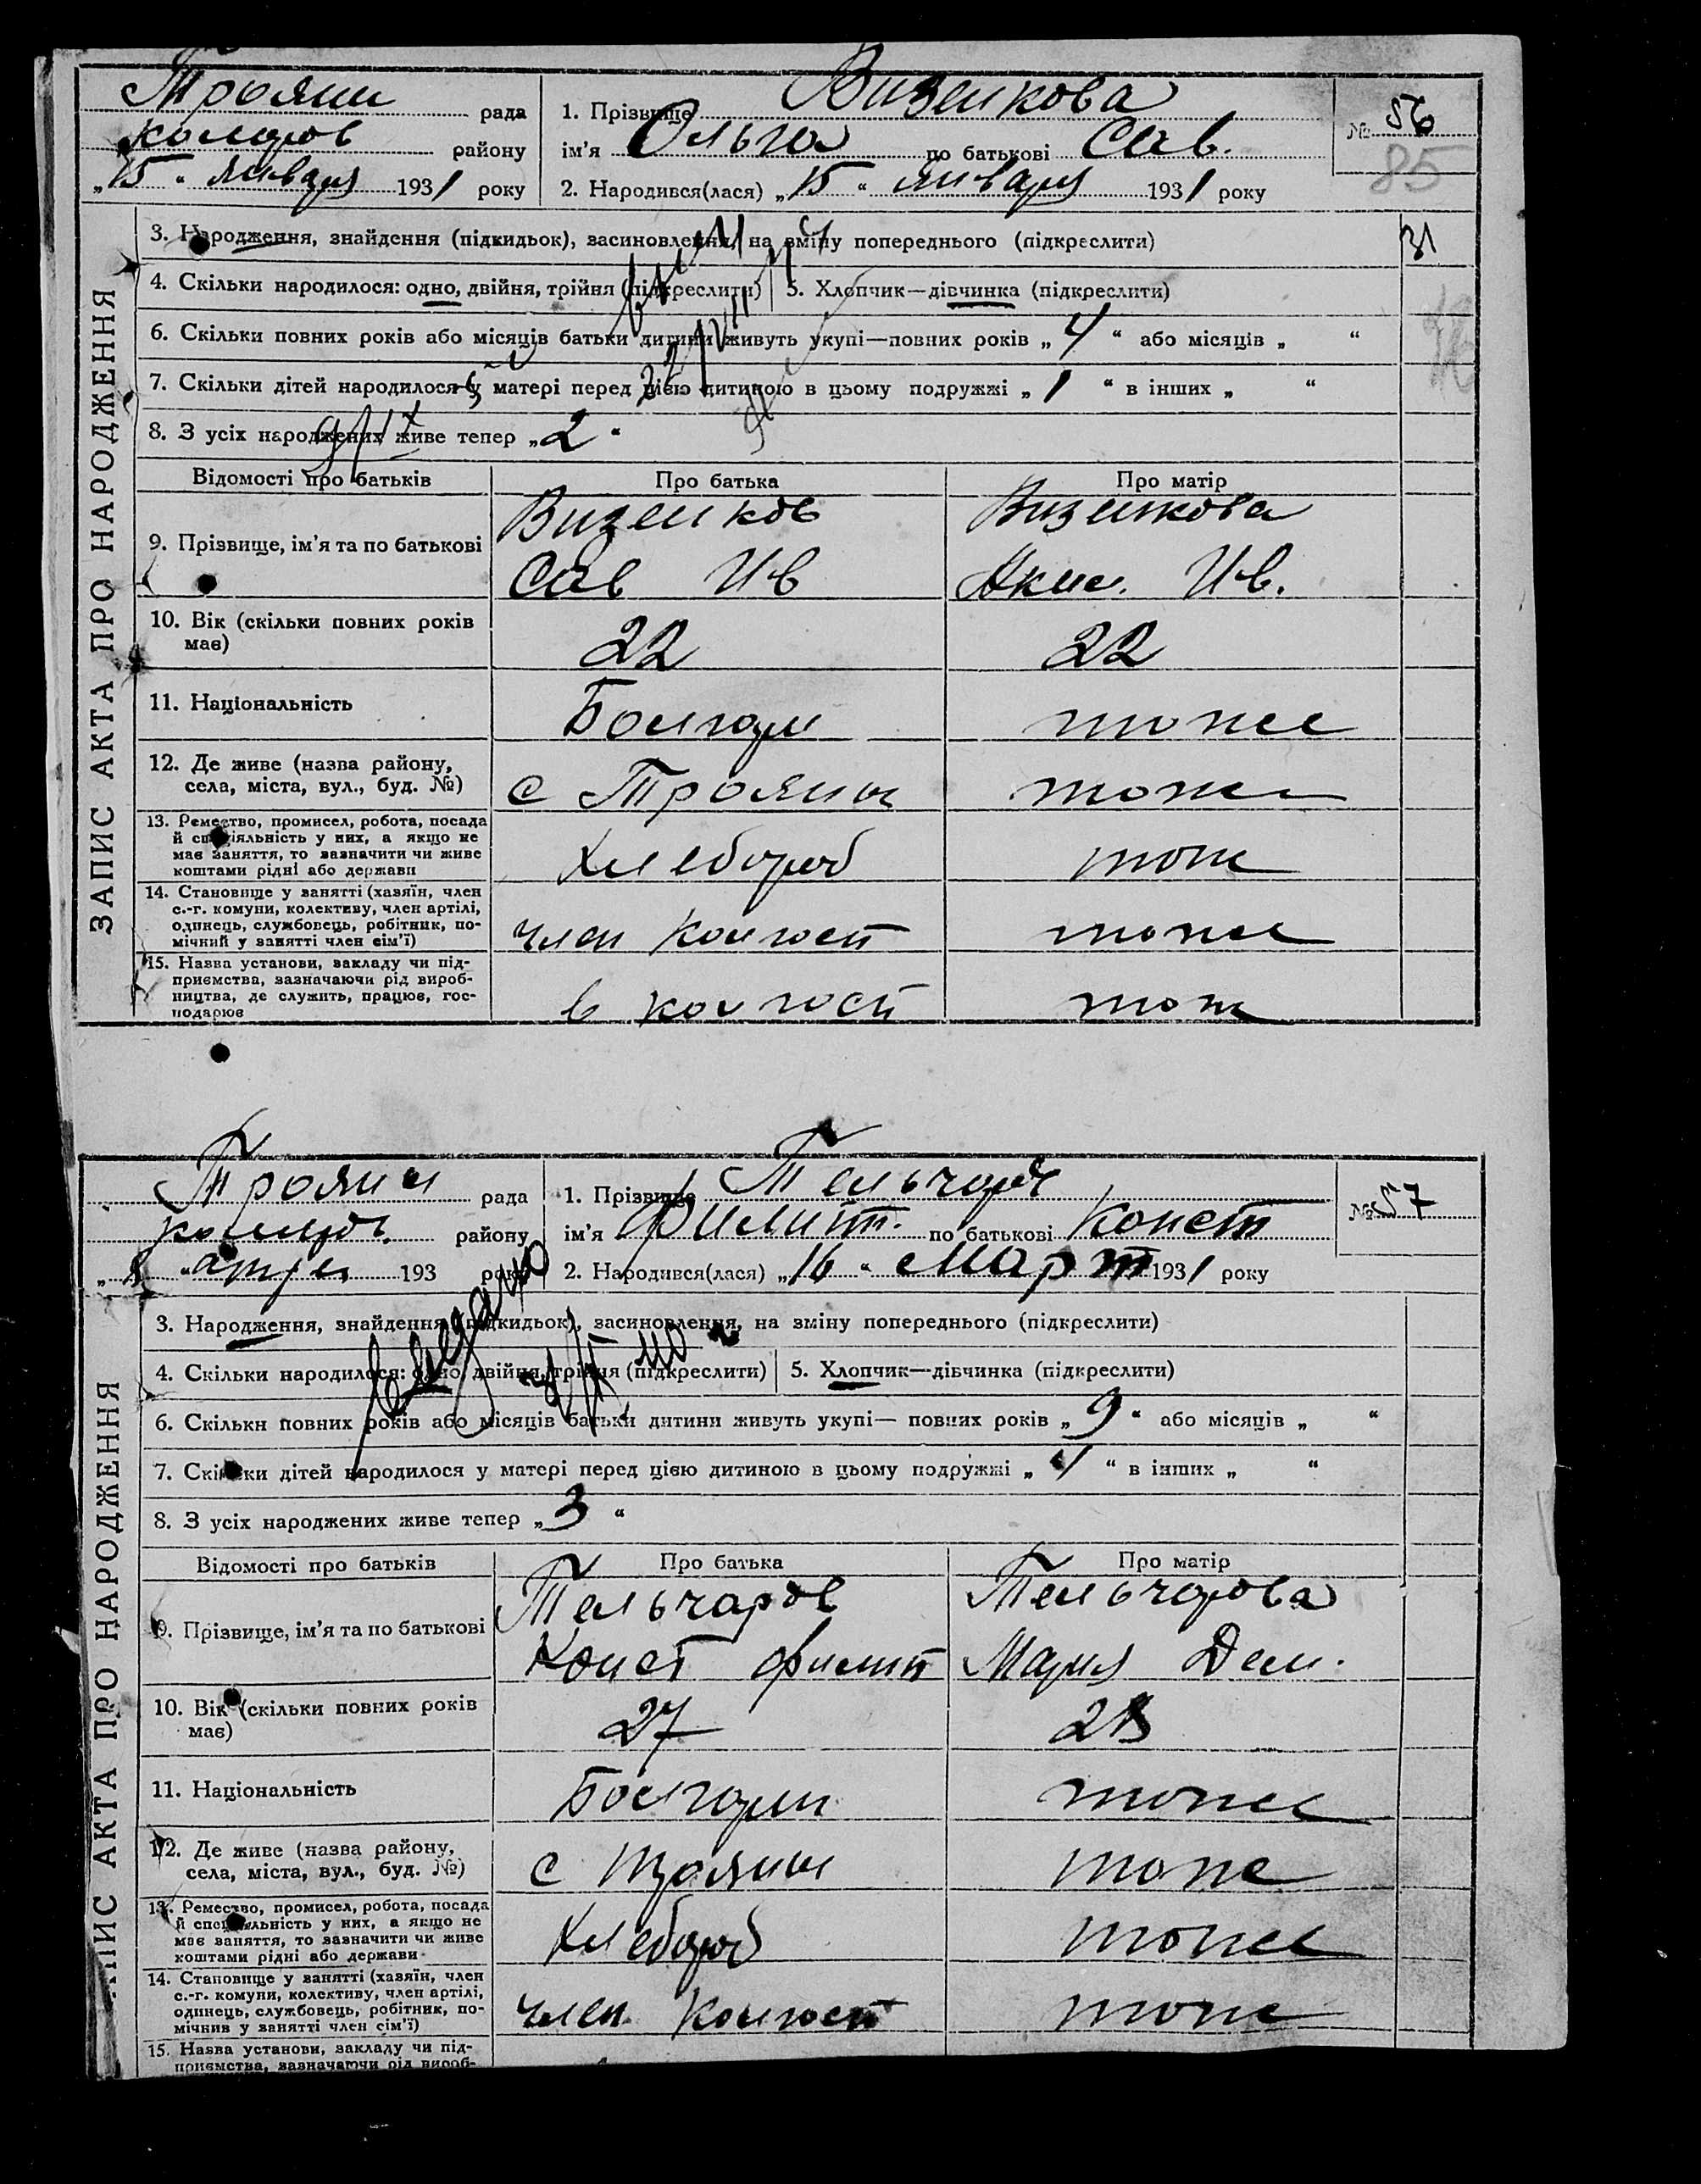 Трояни рада
Коларов району
„15“ января 1931 року
1. Прізвище Визенкова
ім'я Ольга по батькові Сав.
2. Народився(лася) „15“ января 1931 року
№ 56
85
ЗАПИС АКТА ПРО НАРОДЖЕННЯ
3. Народження, знайдення (підкидьок), засиновлення, на зміну попереднього (підкреслити)
31
4. Скільки народилося: одно, двійня, трійня (підкреслити) 5. Хлопчик—дівчинка (підкреслити)
6. Скільки повних років або місяців батьки дитини живуть укупі—повних років „4“ або місяців „ “
7. Скільки дітей народилося у матері перед цією дитиною в цьому подружжі „1“ в інших „ “
8. З усіх народжених живе тепер „2“
Відомості про батьків Про батька Про матір
9. Прізвище, ім'я та по батькові
Визенков Визенкова
Сав Ив Акис. Ив.
10. Вік (скільки повних років
має)
22 22
11. Національність
Болгари тоже
12. Де живе (назва району,
села, міста, вул., буд. №)
с Трояны тоже
13. Ремество, промисел, робота, посада
й спеціяльність у них, а якщо не
має заняття, то зазначити чи живе
коштами рідні або держави
Хлебороб тож
14. Становище у занятті (хазяїн, член
с.-г. комуни, колективу, член артілі,
одинець, службовець, робітник, по-
мічний у занятті член сім'ї)
член колгосп тоже
15. Назва установи, закладу чи під-
приємства, зазначаючи рід вироб-
ництва, де служить, працює, гос-
подарює
в колгосп тож
Трояни рада
коларов. району
„8“ апрел 193 року
1. Прізвище Тельчаров
ім'я Филипп. по батькові Конст
2. Народився(лася) „16“ Март 1931 року
№ 57
ЗАПИС АКТА ПРО НАРОДЖЕННЯ
3. Народження, знайдення (підкидьок), засиновлення, на зміну попереднього (підкреслити)
4. Скільки народилося: одно, двійня, трійня (підкреслити) 5. Хлопчик—дівчинка (підкреслити)
6. Скільки повних років або місяців батьки дитини живуть укупі— повних років „9“ або місяців „ “
7. Скільки дітей народилося у матері перед цією дитиною в цьому подружжі „4“ в інших „ “
8. З усіх народжених живе тепер „3“
Відомості про батьків Про батька Про матір
9. Прізвище, ім'я та по батькові
Тельчаров Тельчарова
Конст Филип Мария Дем.
10. Вік (скільки повних років
має)
27 28
11. Національність
Болгари тоже
12. Де живе (назва району,
села, міста, вул., буд. №)
с Трояны тоже
13. Ремество, промисел, робота, посада
й спеціяльність у них, а якщо не
має заняття, то зазначити чи живе
коштами рідні або держави
Хлебороб тоже
14. Становище у занятті (хазяїн, член
с.-г. комуни, колективу, член артілі,
одинець, службовець, робітник, по-
мічник у занятті член сім'ї)
член колгосп тоже
15. Назва установи, закладу чи під-
приємства, зазначаючи рід вироб-